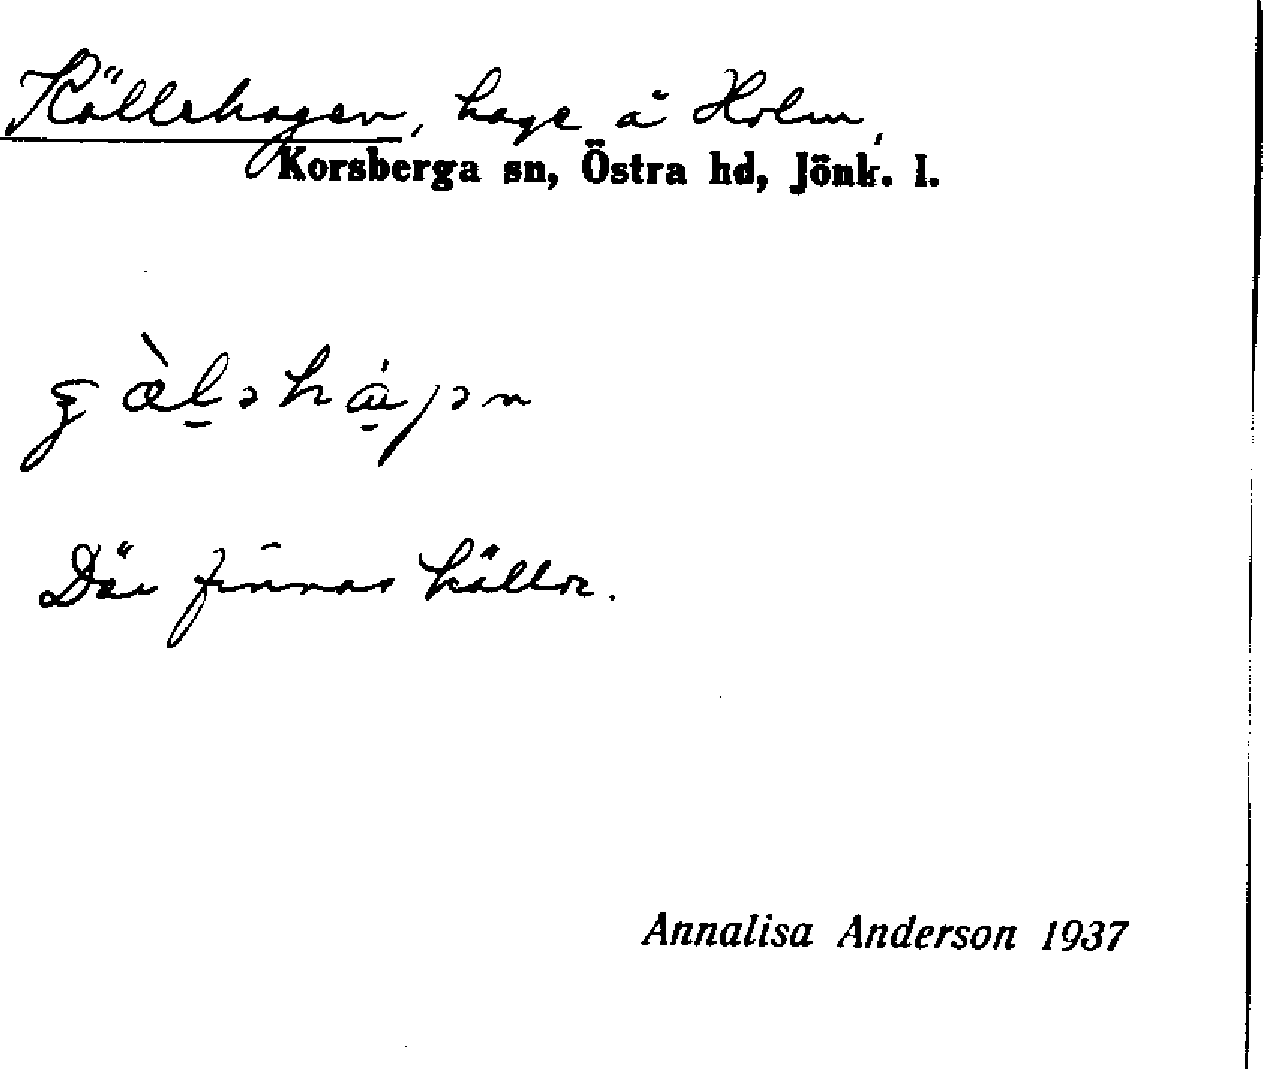 Källehagen, hage å Holm,
Korsberga sn, Östra hd, Jönk. l.
Där finnas källor.
Annalisa Anderson 1937